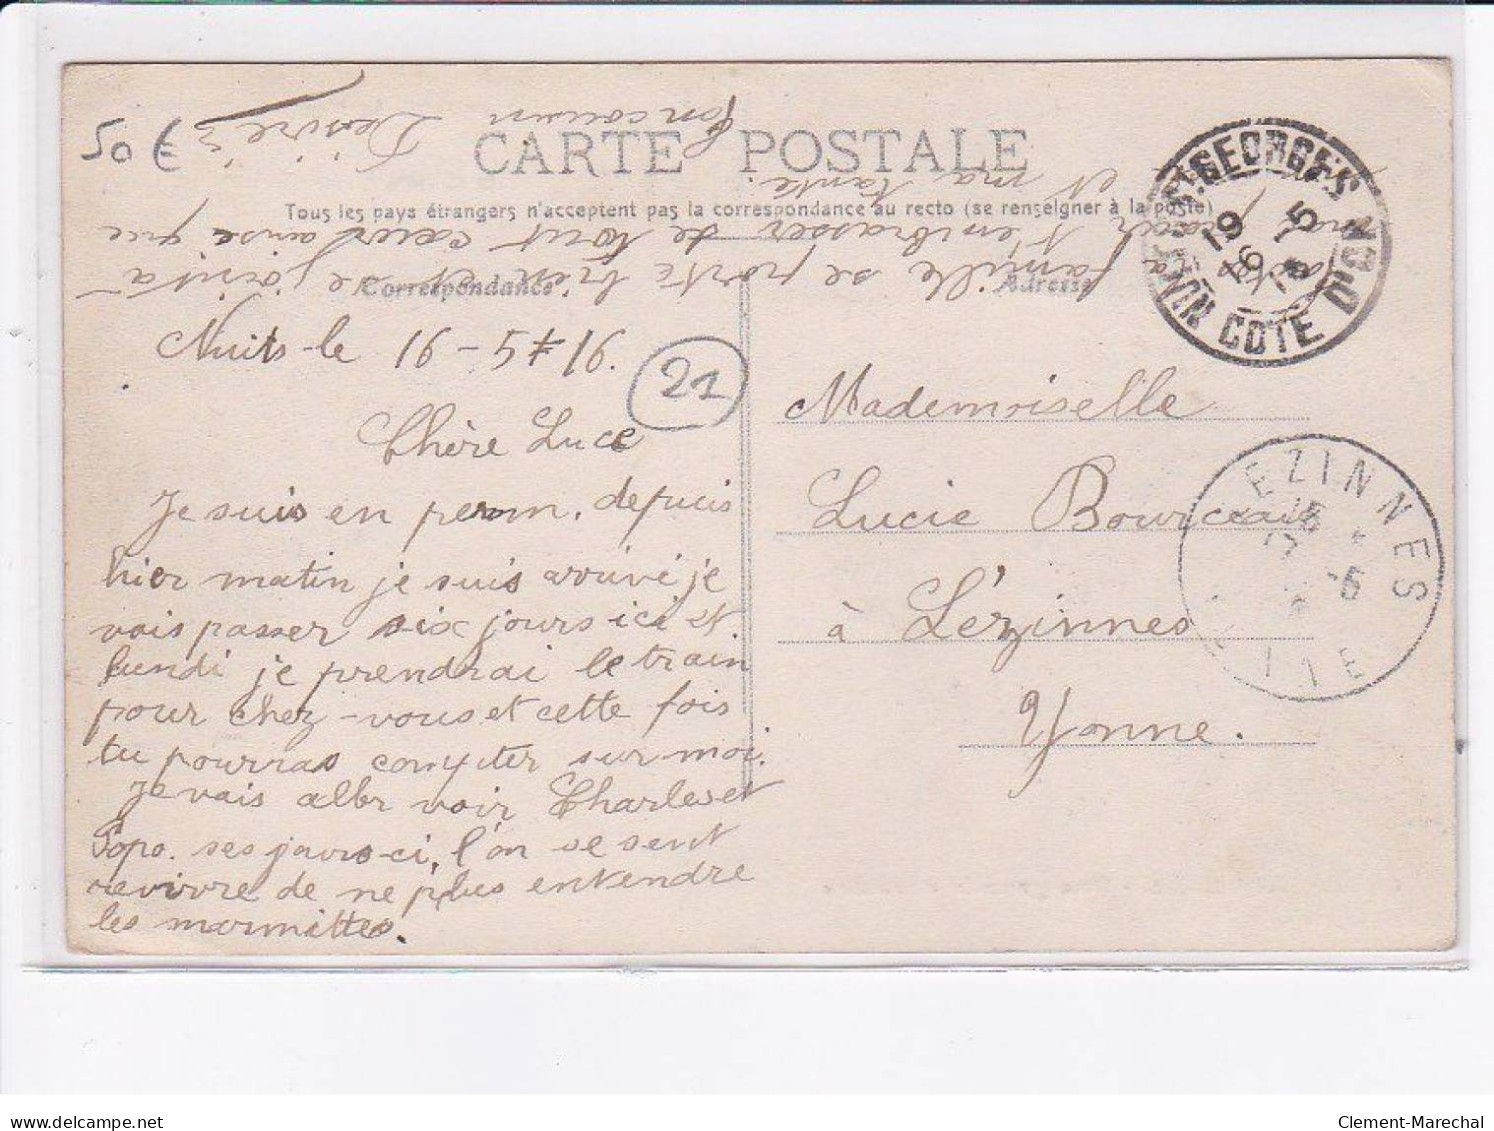 50 €
CARTE POSTALE
Tous les pays étrangers n'acceptent pas la correspondance au recto (se renseigner à la poste)
Correspondance
Adresse
NUITS-ST-GEORGES
COTE D'OR
19 -5
16
Nuits-le 16-5-16.
21
Chère Luce
Je suis en perm. depuis
hier matin je suis arrivé je
vais passer six jours ici et
lundi je prendrai le train
pour chez-vous et cette fois
tu pourras compter sur moi.
Je vais aller voir Charles et
Popo. ses jours-ci, l'on se sent
revivre de ne plus entendre
les marmittes.
famille se porte bien et se joint à
pour t'embrasser de tout cœur ainsi que
et ma tante.
Ton cousin
Désiré
Mademoiselle
Lucie Bourceau
à Lézinnes
Yonne.
LEZINNES
-5
Clement-Marechal
delcampe.net